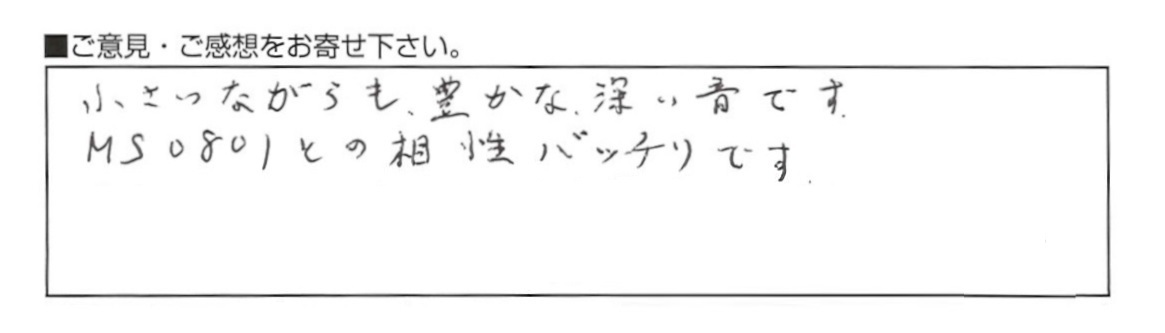 ■ご意見・ご感想をお寄せ下さい。
小さいながらも、豊かな、深い音です。
MS0801との相性バッチリです。